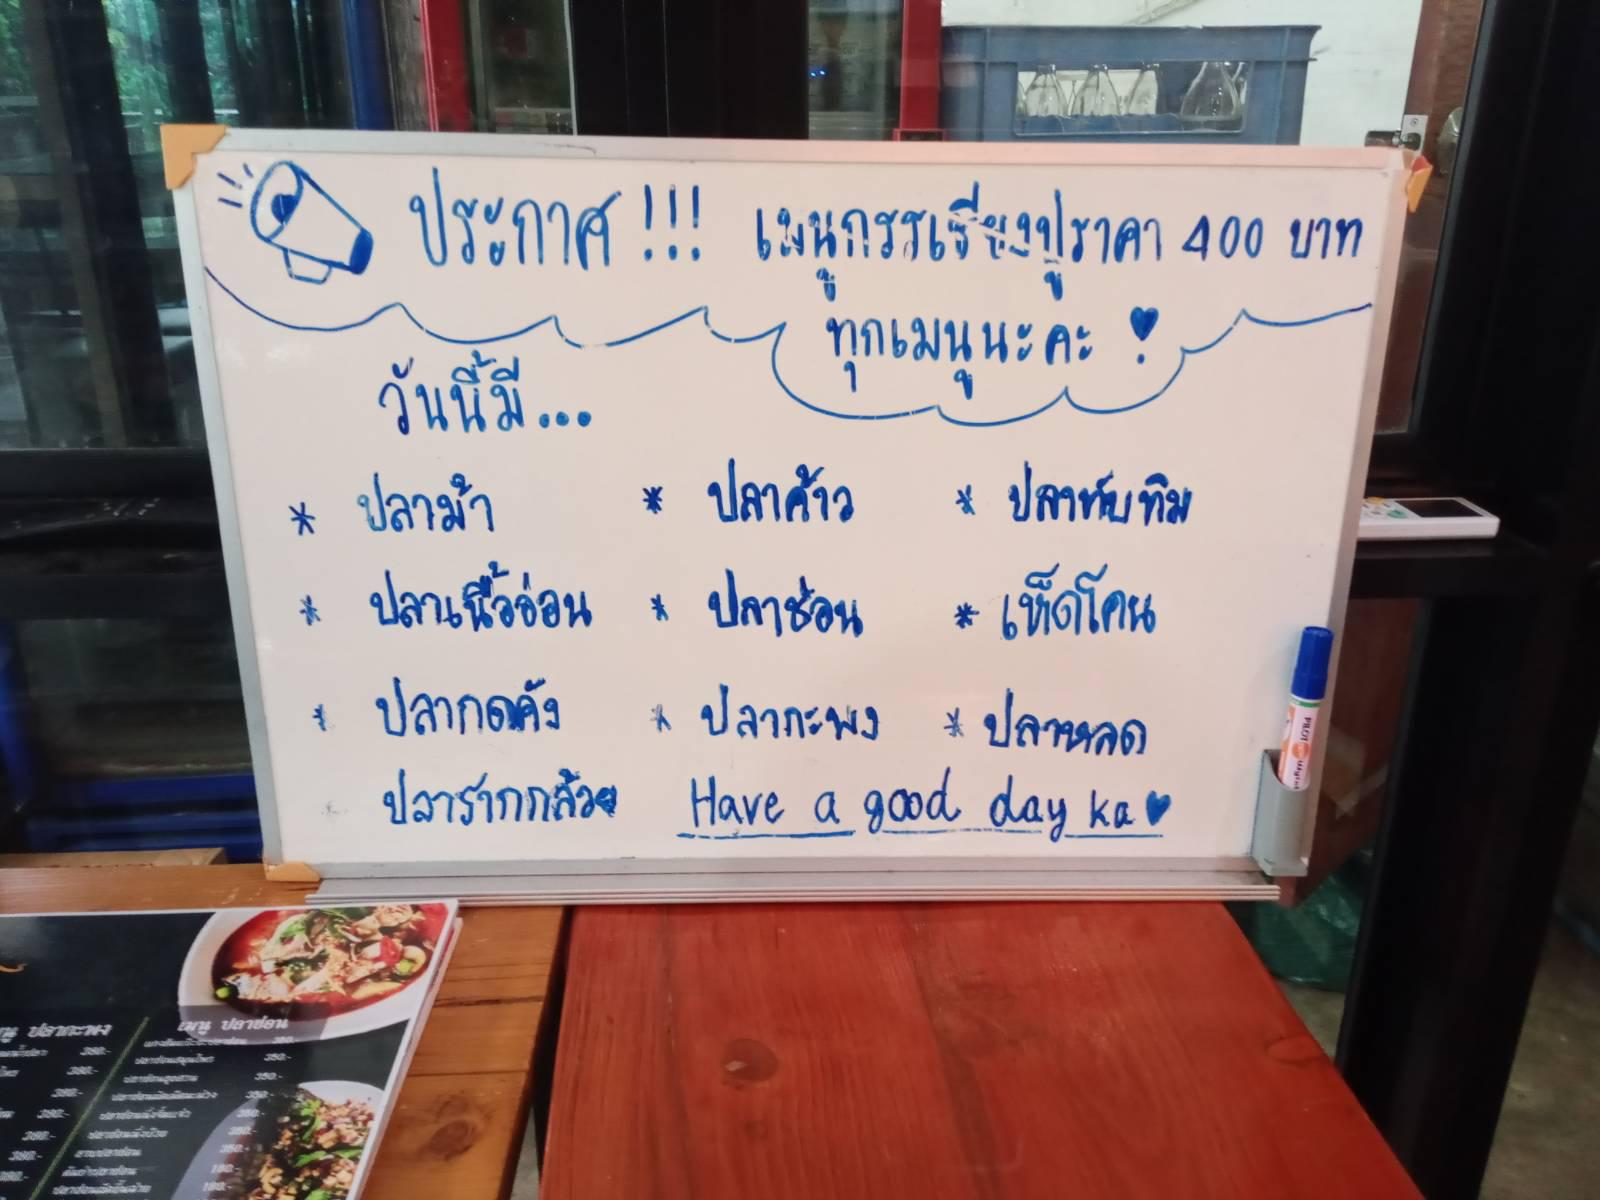 ประกาศ !!! เมนูกรรเชียงปูราคา 400 บาท
ทุกเมนูนะคะ
วันนี้มี...
* ปลาม้า * ปลาค้าว * ปลาทับทิม
* ปลาเนื้ออ่อน * ปลาช่อน * เห็ดโคน
* ปลากดคัง * ปลากะพง * ปลาหลด
ปลารากกล้วย Have a good day ka
PILOT
ปลากะพง
เมนู ปลาช่อน
380.-
350.-
380.-
350.-
350.-
380.-
350.-
380.-
350.-
180.-
180.-